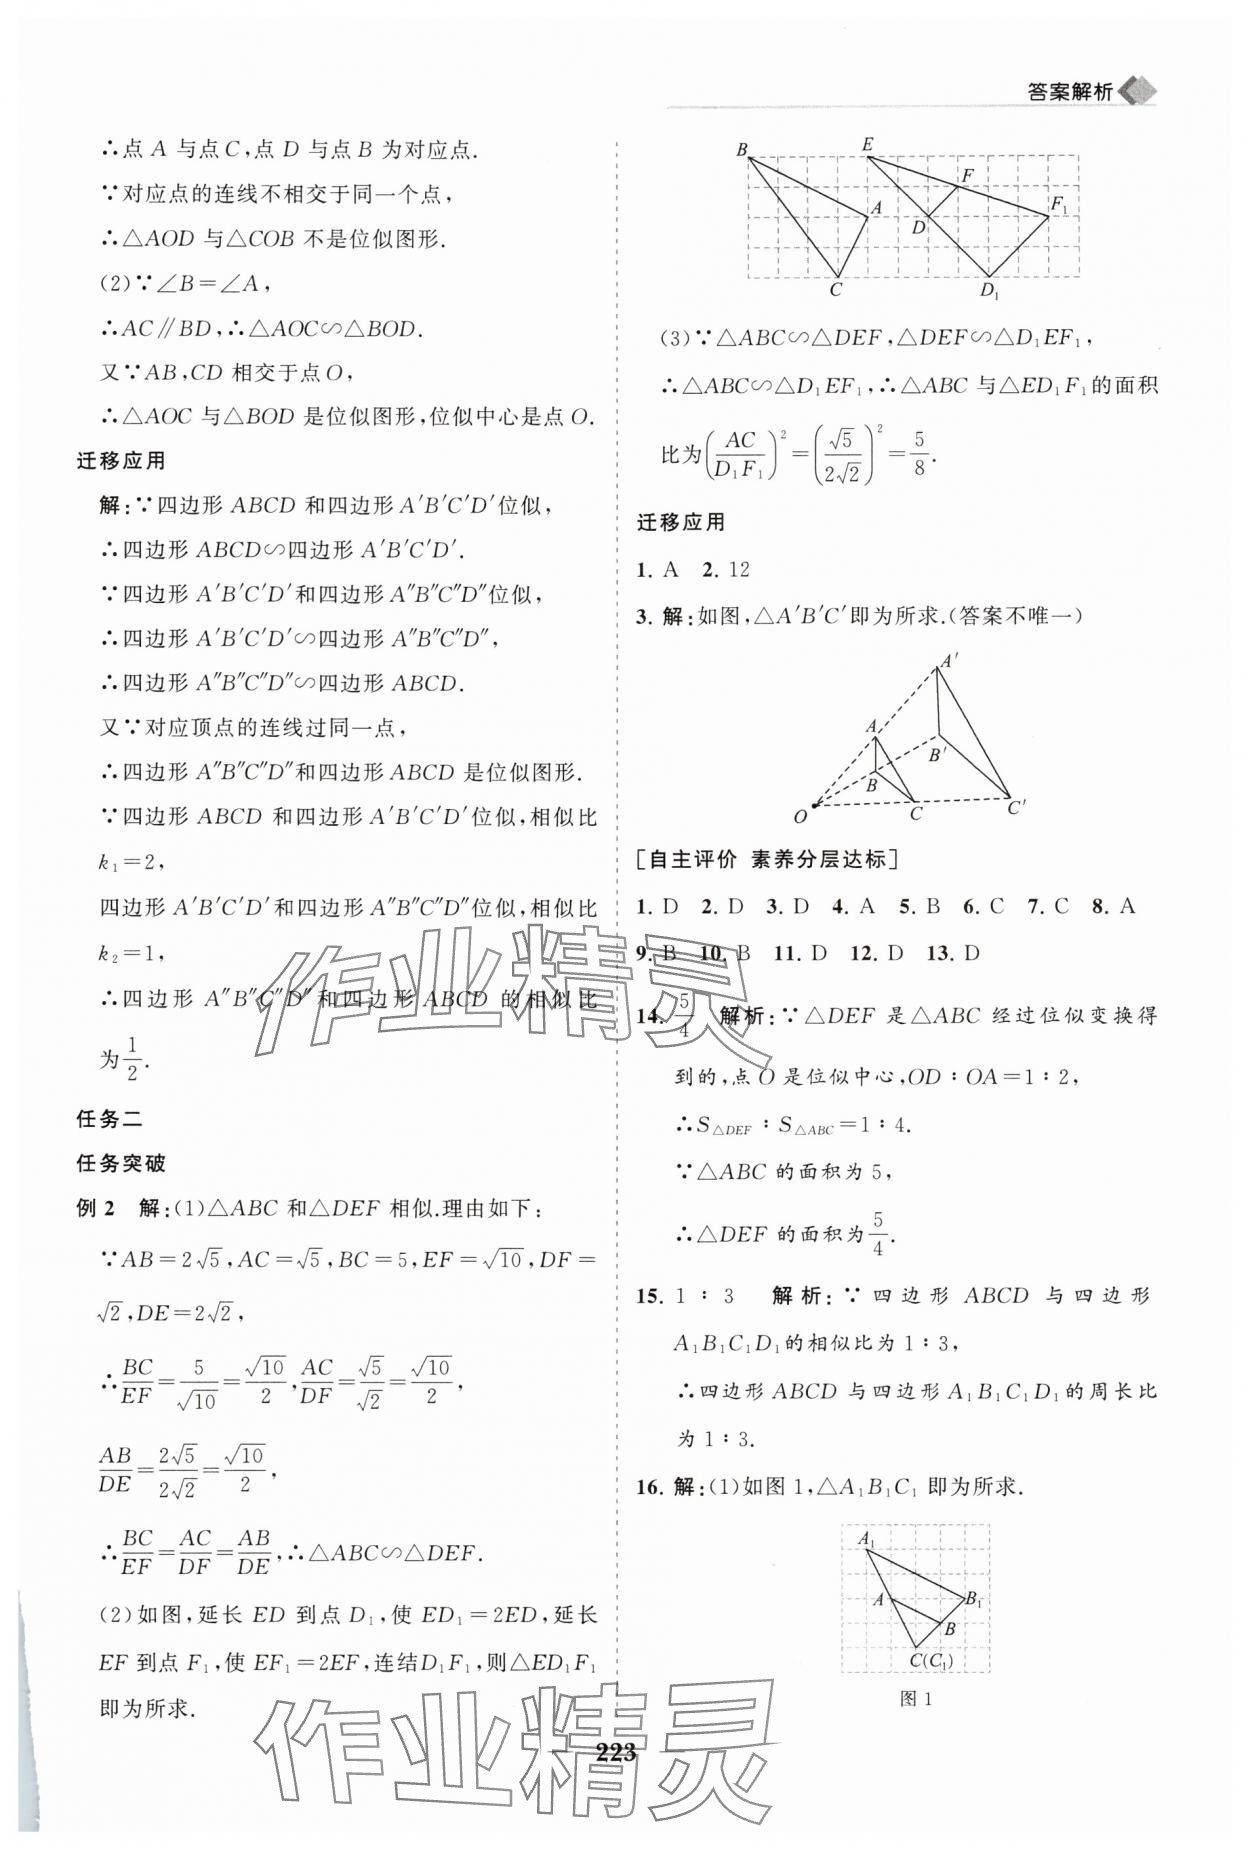 答案解析
∴点 A 与点 C,点 D 与点 B 为对应点.
∵对应点的连线不相交于同一个点,
∴△AOD 与△COB 不是位似图形.
(2)∵∠B=∠A,
∴AC∥BD,∴△AOC∽△BOD.
又∵AB,CD 相交于点 O,
∴△AOC 与△BOD 是位似图形,位似中心是点 O.
迁移应用
解:∵四边形 ABCD 和四边形 A′B′C′D′位似,
∴四边形 ABCD∽四边形 A′B′C′D′.
∵四边形 A′B′C′D′和四边形 A″B″C″D″位似,
∴四边形 A′B′C′D′∽四边形 A″B″C″D″,
∴四边形 A″B″C″D″∽四边形 ABCD.
又∵对应顶点的连线过同一点,
∴四边形 A″B″C″D″和四边形 ABCD 是位似图形.
∵四边形 ABCD 和四边形 A′B′C′D′位似,相似比
k₁=2,
四边形 A′B′C′D′和四边形 A″B″C″D″位似,相似比
k₂=1,
∴四边形 A″B″C″D″和四边形 ABCD 的相似比
为1/2.
任务二
任务突破
例 2 解:(1)△ABC 和△DEF 相似.理由如下:
∵AB=2√5,AC=√5,BC=5,EF=√10,DF=
√2,DE=2√2,
∴BC/EF=5/√10=√10/2,AC/DF=√5/√2=√10/2,
AB/DE=2√5/2√2=√10/2,
∴BC/EF=AC/DF=AB/DE,∴△ABC∽△DEF.
(2)如图,延长 ED 到点 D₁,使 ED₁=2ED,延长
EF 到点 F₁,使 EF₁=2EF,连结D₁F₁,则△ED₁F₁
即为所求.
B E F A D F₁ C D₁
(3)∵△ABC∽△DEF,△DEF∽△D₁EF₁,
∴△ABC∽△D₁EF₁,∴△ABC 与△ED₁F₁的面积
比为(AC/D₁F₁)²=(√5/2√2)²=5/8.
迁移应用
1. A 2. 12
3. 解:如图,△A′B′C′即为所求.(答案不唯一)
A′ A B′ B O C C′
[自主评价 素养分层达标]
1. D 2. D 3. D 4. A 5. B 6. C 7. C 8. A
9. B 10. B 11. D 12. D 13. D
14. 5/4 解析:∵△DEF 是△ABC 经过位似变换得
到的,点 O 是位似中心,OD∶OA=1∶2,
∴S△DEF∶S△ABC=1∶4.
∵△ABC 的面积为 5,
∴△DEF 的面积为5/4.
15. 1∶3 解析:∵四边形 ABCD 与四边形
A₁B₁C₁D₁的相似比为 1∶3,
∴四边形 ABCD 与四边形 A₁B₁C₁D₁的周长比
为 1∶3.
16. 解:(1)如图 1,△A₁B₁C₁ 即为所求.
A₁ A B₁ B C(C₁)
图 1
作业精灵
作业精灵
223